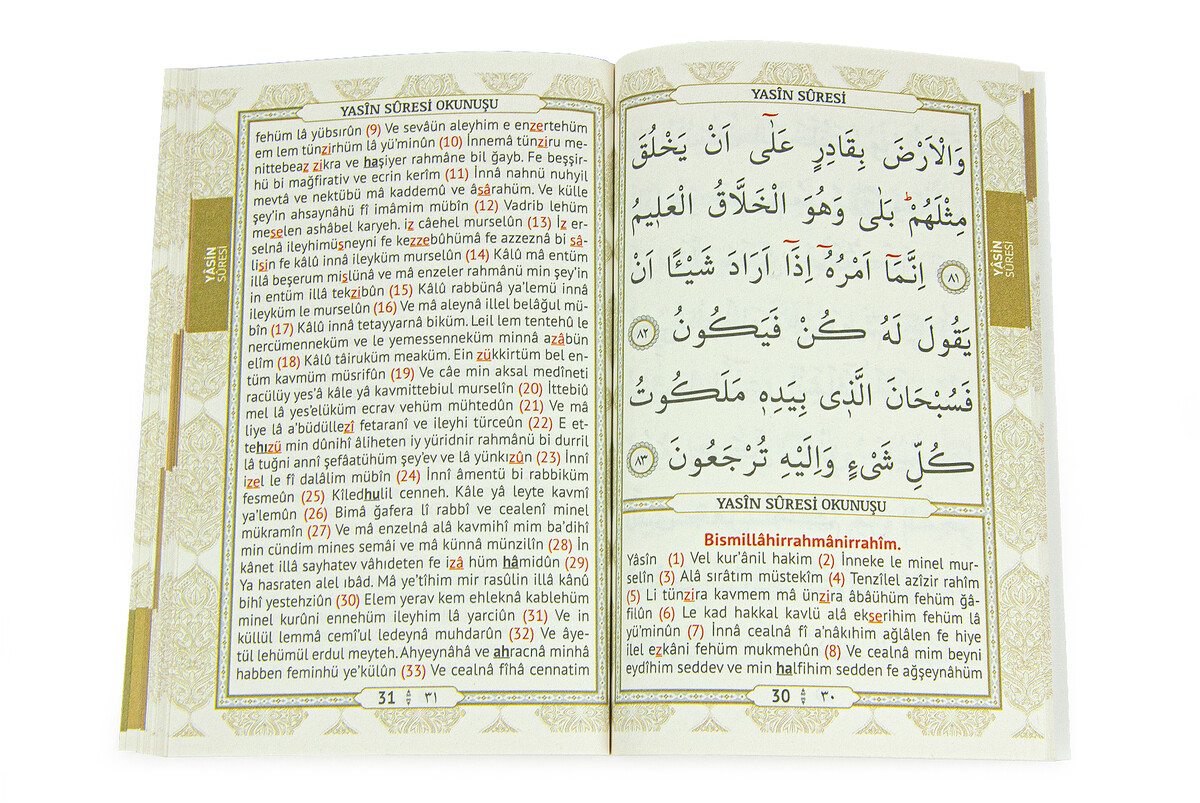 YASÎN SÛRESİ
وَالْاَرْضَ بِقَادِرٍ عَلٰٓى اَنْ يَخْلُقَ
مِثْلَهُمْۜ بَلٰى وَهُوَ الْخَلَّاقُ الْعَل۪يمُ
﴿٨١﴾ اِنَّمَٓا اَمْرُهُٓ اِذَٓا اَرَادَ شَيْـًٔا اَنْ
يَقُولَ لَهُ كُنْ فَيَكُونُ ﴿٨٢﴾
فَسُبْحَانَ الَّذ۪ي بِيَدِه۪ مَلَكُوتُ
كُلِّ شَيْءٍ وَاِلَيْهِ تُرْجَعُونَ ﴿٨٣﴾
YASÎN SÛRESİ OKUNUŞU
Bismillâhirrahmânirrahîm.
Yâsîn (1) Vel kur’ânil hakim (2) İnneke le minel mur-
selîn (3) Alâ sırâtım müstekîm (4) Tenzîlel azîzir rahîm
(5) Li tünzira kavmem mâ ünzira âbâühüm fehüm ğâ-
filûn (6) Le kad hakkal kavlü alâ ekserihim fehüm lâ
yü’minûn (7) İnnâ cealnâ fî a’nâkıhim ağlâlen fe hiye
ilel ezkâni fehüm mukmehûn (8) Ve cealnâ mim beyni
eydîhim seddev ve min halfihim sedden fe ağşeynâhüm
30 ٣٠
YÂSÎN
SÛRESİ
YASÎN SÛRESİ OKUNUŞU
fehüm lâ yübsırûn (9) Ve sevâün aleyhim e enzertehüm
em lem tünzirhüm lâ yü’minûn (10) İnnemâ tünziru me-
nittebeaz zikra ve haşiyer rahmâne bil ğayb. Fe beşşir-
hü bi mağfirativ ve ecrin kerîm (11) İnnâ nahnü nuhyil
mevtâ ve nektübü mâ kaddemû ve âsârahüm. Ve külle
şey’in ahsaynâhü fî imâmim mübîn (12) Vadrib lehüm
meselen ashâbel karyeh. iz câehel murselûn (13) İz er-
selnâ ileyhimüsneyni fe kezzebûhümâ fe azzeznâ bi sâ-
lisin fe kâlû innâ ileyküm murselûn (14) Kâlû mâ entüm
illâ beşerum mislünâ ve mâ enzeler rahmânü min şey’in
in entüm illâ tekzibûn (15) Kâlû rabbünâ ya’lemü innâ
ileyküm le murselûn (16) Ve mâ aleynâ illel belâğul mü-
bîn (17) Kâlû innâ tetayyarnâ biküm. Leil lem tentehû le
nercümenneküm ve le yemessenneküm minnâ azâbün
elîm (18) Kâlû tâiruküm meaküm. Ein zükkirtüm bel en-
tüm kavmüm müsrifûn (19) Ve câe min aksal medîneti
racülüy yes’â kâle yâ kavmittebiul murselîn (20) İttebiû
mel lâ yes’elüküm ecrav vehüm mühtedûn (21) Ve mâ
liye lâ a’büdüllezî fetaranî ve ileyhi türceûn (22) E et-
tehızü min dûnihî âliheten iy yüridnir rahmânü bi durril
lâ tuğni annî şefâatühüm şey’ev ve lâ yünkızûn (23) İnnî
izel le fî dalâlim mübîn (24) İnnî âmentü bi rabbiküm
fesmeûn (25) Kîledhulil cenneh. Kâle yâ leyte kavmî
ya’lemûn (26) Bimâ ğafera lî rabbî ve cealenî minel
mükramîn (27) Ve mâ enzelnâ alâ kavmihî mim ba’dihî
min cündim mines semâi ve mâ künnâ münzilîn (28) İn
kânet illâ sayhatev vâhıdeten fe izâ hüm hâmidûn (29)
Ya hasraten alel ıbâd. Mâ ye’tîhim mir rasûlin illâ kânû
bihî yestehziûn (30) Elem yerav kem ehleknâ kablehüm
minel kurûni ennehüm ileyhim lâ yarciûn (31) Ve in
küllül lemmâ cemî’ul ledeynâ muhdarûn (32) Ve âye-
tül lehümül erdul meyteh. Ahyeynâhâ ve ahracnâ minhâ
habben feminhü ye’külûn (33) Ve cealnâ fîhâ cennatim
31 ٣١
YÂSÎN
SÛRESİ